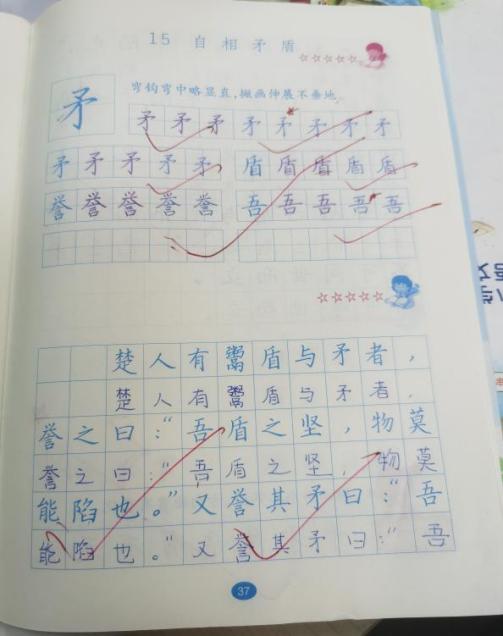 15 自相矛盾
☆☆☆☆☆
弯钩弯中略显直，撇画伸展不垂地。
矛
矛矛矛矛矛矛矛矛
矛矛矛矛矛 盾盾盾盾盾
誉誉誉誉誉 吾吾吾吾吾
☆☆☆☆☆
楚人有鬻盾与矛者，
楚人有鬻盾与矛者，
誉之曰：“吾盾之坚，物莫
誉之曰：“吾盾之坚，物莫
能陷也。”又誉其矛曰：“吾
能陷也。”又誉其矛曰：“吾
37